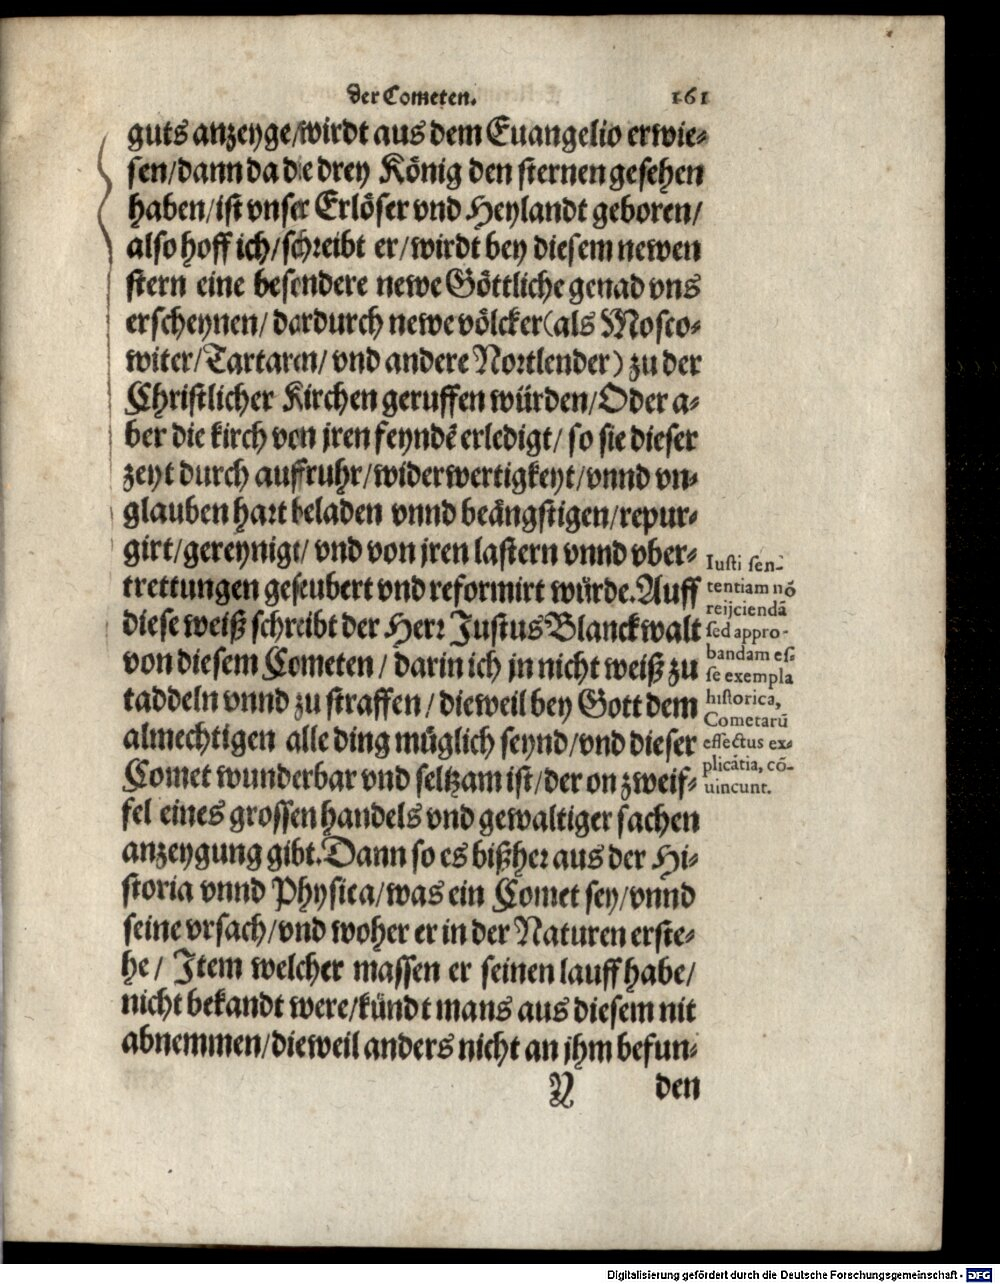 der Cometen. 161
guts anzeyge/wirdt aus dem Euangelio erwie⸗
sen/dann da die drey König den sternen gesehen
haben/ist vnser Erlöser vnd Heylandt geboren/
also hoff ich/schreibt er/wirdt bey diesem newen
stern eine besondere newe Göttliche genad vns
erscheynen/ dardurch newe völcker(als Mosco⸗
witer/Tartaren/ vnd andere Nortlender) zu der
Christlicher Kirchen geruffen würden/Oder a⸗
ber die kirch von jren feyndē erledigt/ so sie dieser
zeyt durch auffruhr/widerwertigkeyt/vnnd vn⸗
glauben hart beladen vnnd beängstigen/repur⸗
girt/gereynigt/ vnd von jren lastern vnnd vber⸗
trettungen geseubert vnd reformirt würde.Auff
diese weiß schreibt der Herr Justus Blanckwalt
von diesem Cometen / darin ich jn nicht weiß zu
taddeln vnnd zu straffen / dieweil bey Gott dem
almechtigen alle ding müglich seynd/vnd dieser
Comet wunderbar vnd seltzam ist/der on zweif⸗
fel eines grossen handels vnd gewaltiger sachen
anzeygung gibt.Dann so es bißher aus der Hi⸗
storia vnnd Physica/was ein Comet sey/vnnd
seine vrsach/vnd woher er in der Naturen erste⸗
he/ Item welcher massen er seinen lauff habe/
nicht bekandt were/kündt mans aus diesem nit
abnemmen/dieweil anders nicht an jhm befun⸗
N den
Iusti sen-
tentiam nō
reijciendā
sed appro-
bandam es-
se exempla
historica,
Cometarū
effectus ex-
plicātia, cō-
uincunt.
Digitalisierung gefördert durch die Deutsche Forschungsgemeinschaft - DFG